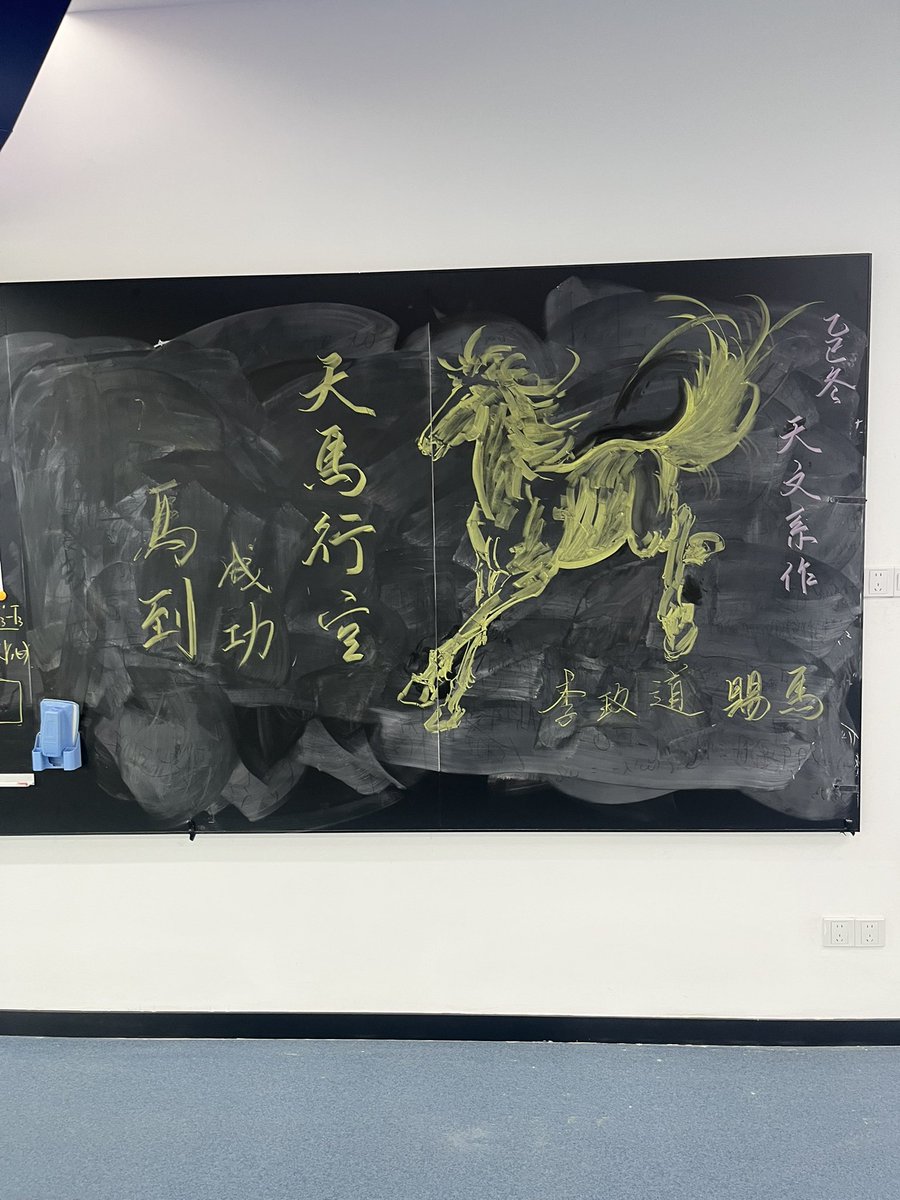 乙巳冬
天文系作
李政道賜馬
天馬行空
馬到
成功